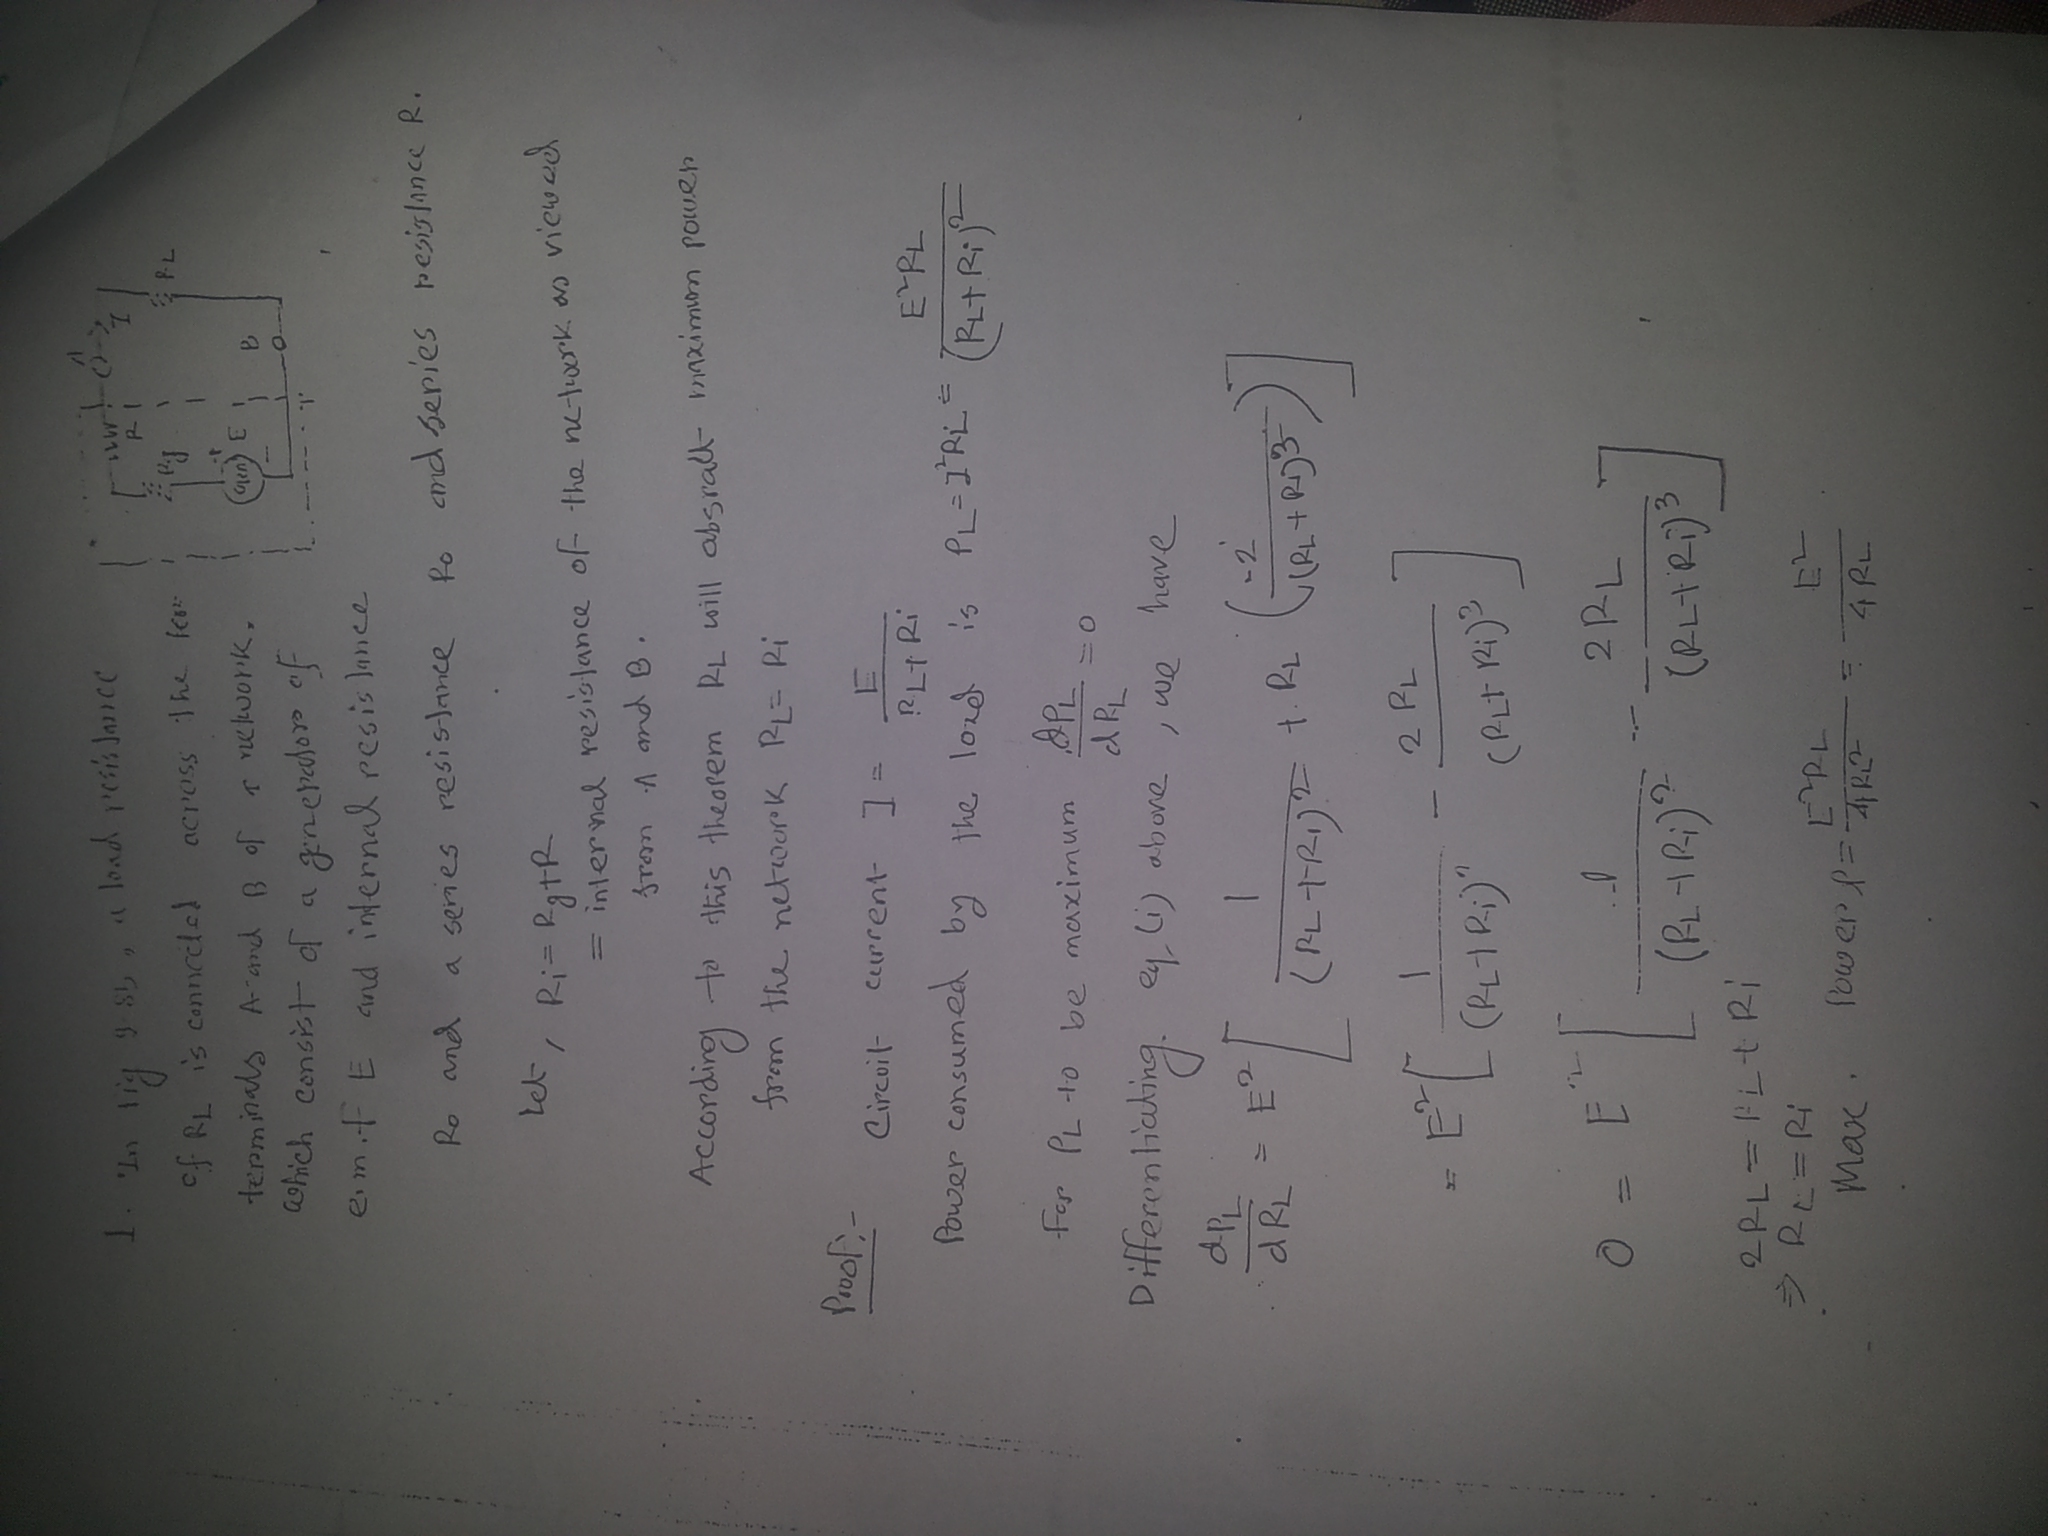 1. In fig 9.86, a load resistance
of RL is connected across the ter
terminals A and B of a network,
which consist of a generators of
e.m.f E and internal resistance
R0 and a series resistance R0 and series resistance R.
R
A
I
Rg
RL
Gen
+
E
-
B
Let, Ri = Rg+R
= internal resistance of the network as viewed
from A and B.
According to this theorem RL will absralt maximum power
from the network RL = Ri
Proof:-
Circuit current I = E / (RL + Ri)
Power consumed by the load is PL = I²RL = E²RL / (RL + Ri)²
For PL to be maximum dPL / dRL = 0
Differentiating eq (i) above, we have
dPL / dRL = E² [ 1 / (RL + Ri)² + RL ( -2 / (RL + Ri)³ ) ]
= E² [ 1 / (RL + Ri)² - 2RL / (RL + Ri)³ ]
0 = E² [ 1 / (RL + Ri)² - 2RL / (RL + Ri)³ ]
2RL = RL + Ri
⇒ RL = Ri
Max. Power P = E²RL / 4RL² = E² / 4RL